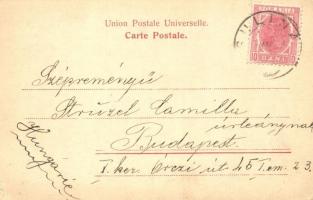 Union Postale Universelle.
Carte Postale.
ROMANIA
10 BANI 10
Szépreményű
Strúzel Camilla
úrleánynak
Budapest.
I. ker. Órczi út 45 I. em. 23.
Hungárie